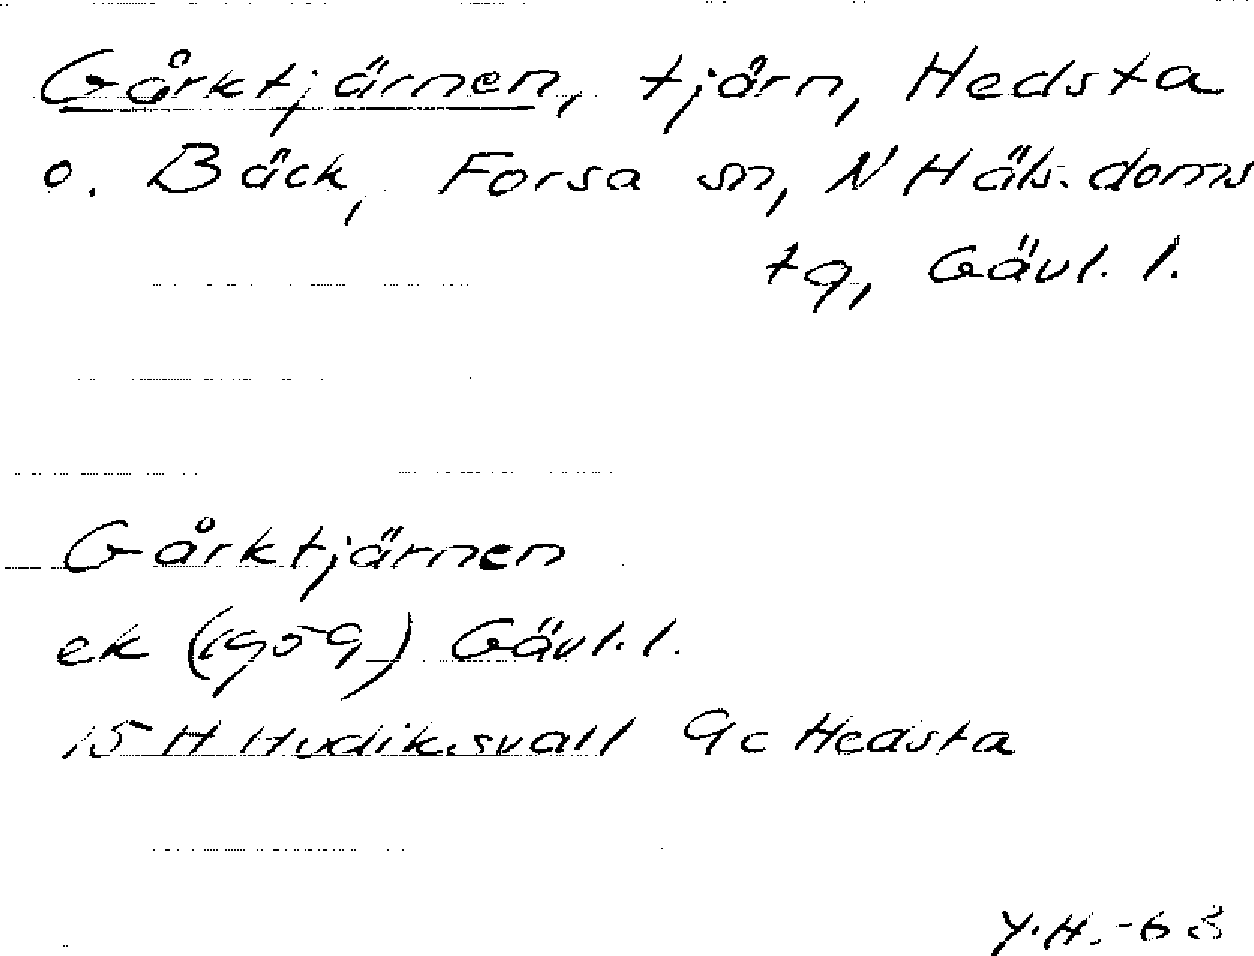 Gårktjärnen, tjärn, Hedsta
o. Bäck, Forsa sn, N Häls. doms
tg, Gävl. l.
Gårktjärnen
ek (1959) Gävl. l.
15 H Hudiksvall 9c Hedsta
Y.H. -63